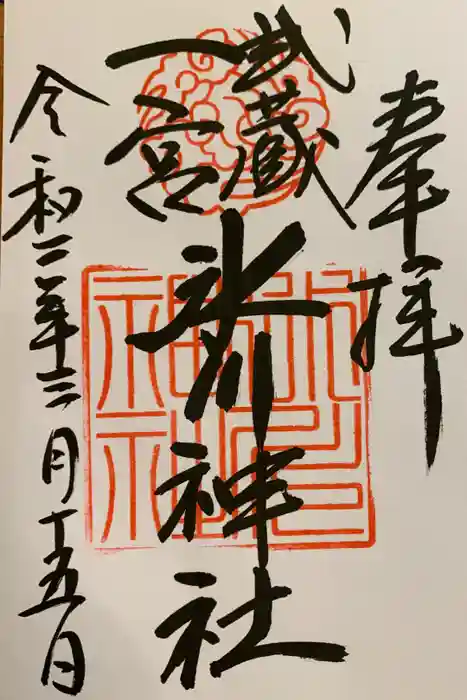 奉拝
武蔵
一宮
氷川神社
令和二年十二月十五日
氷川神社